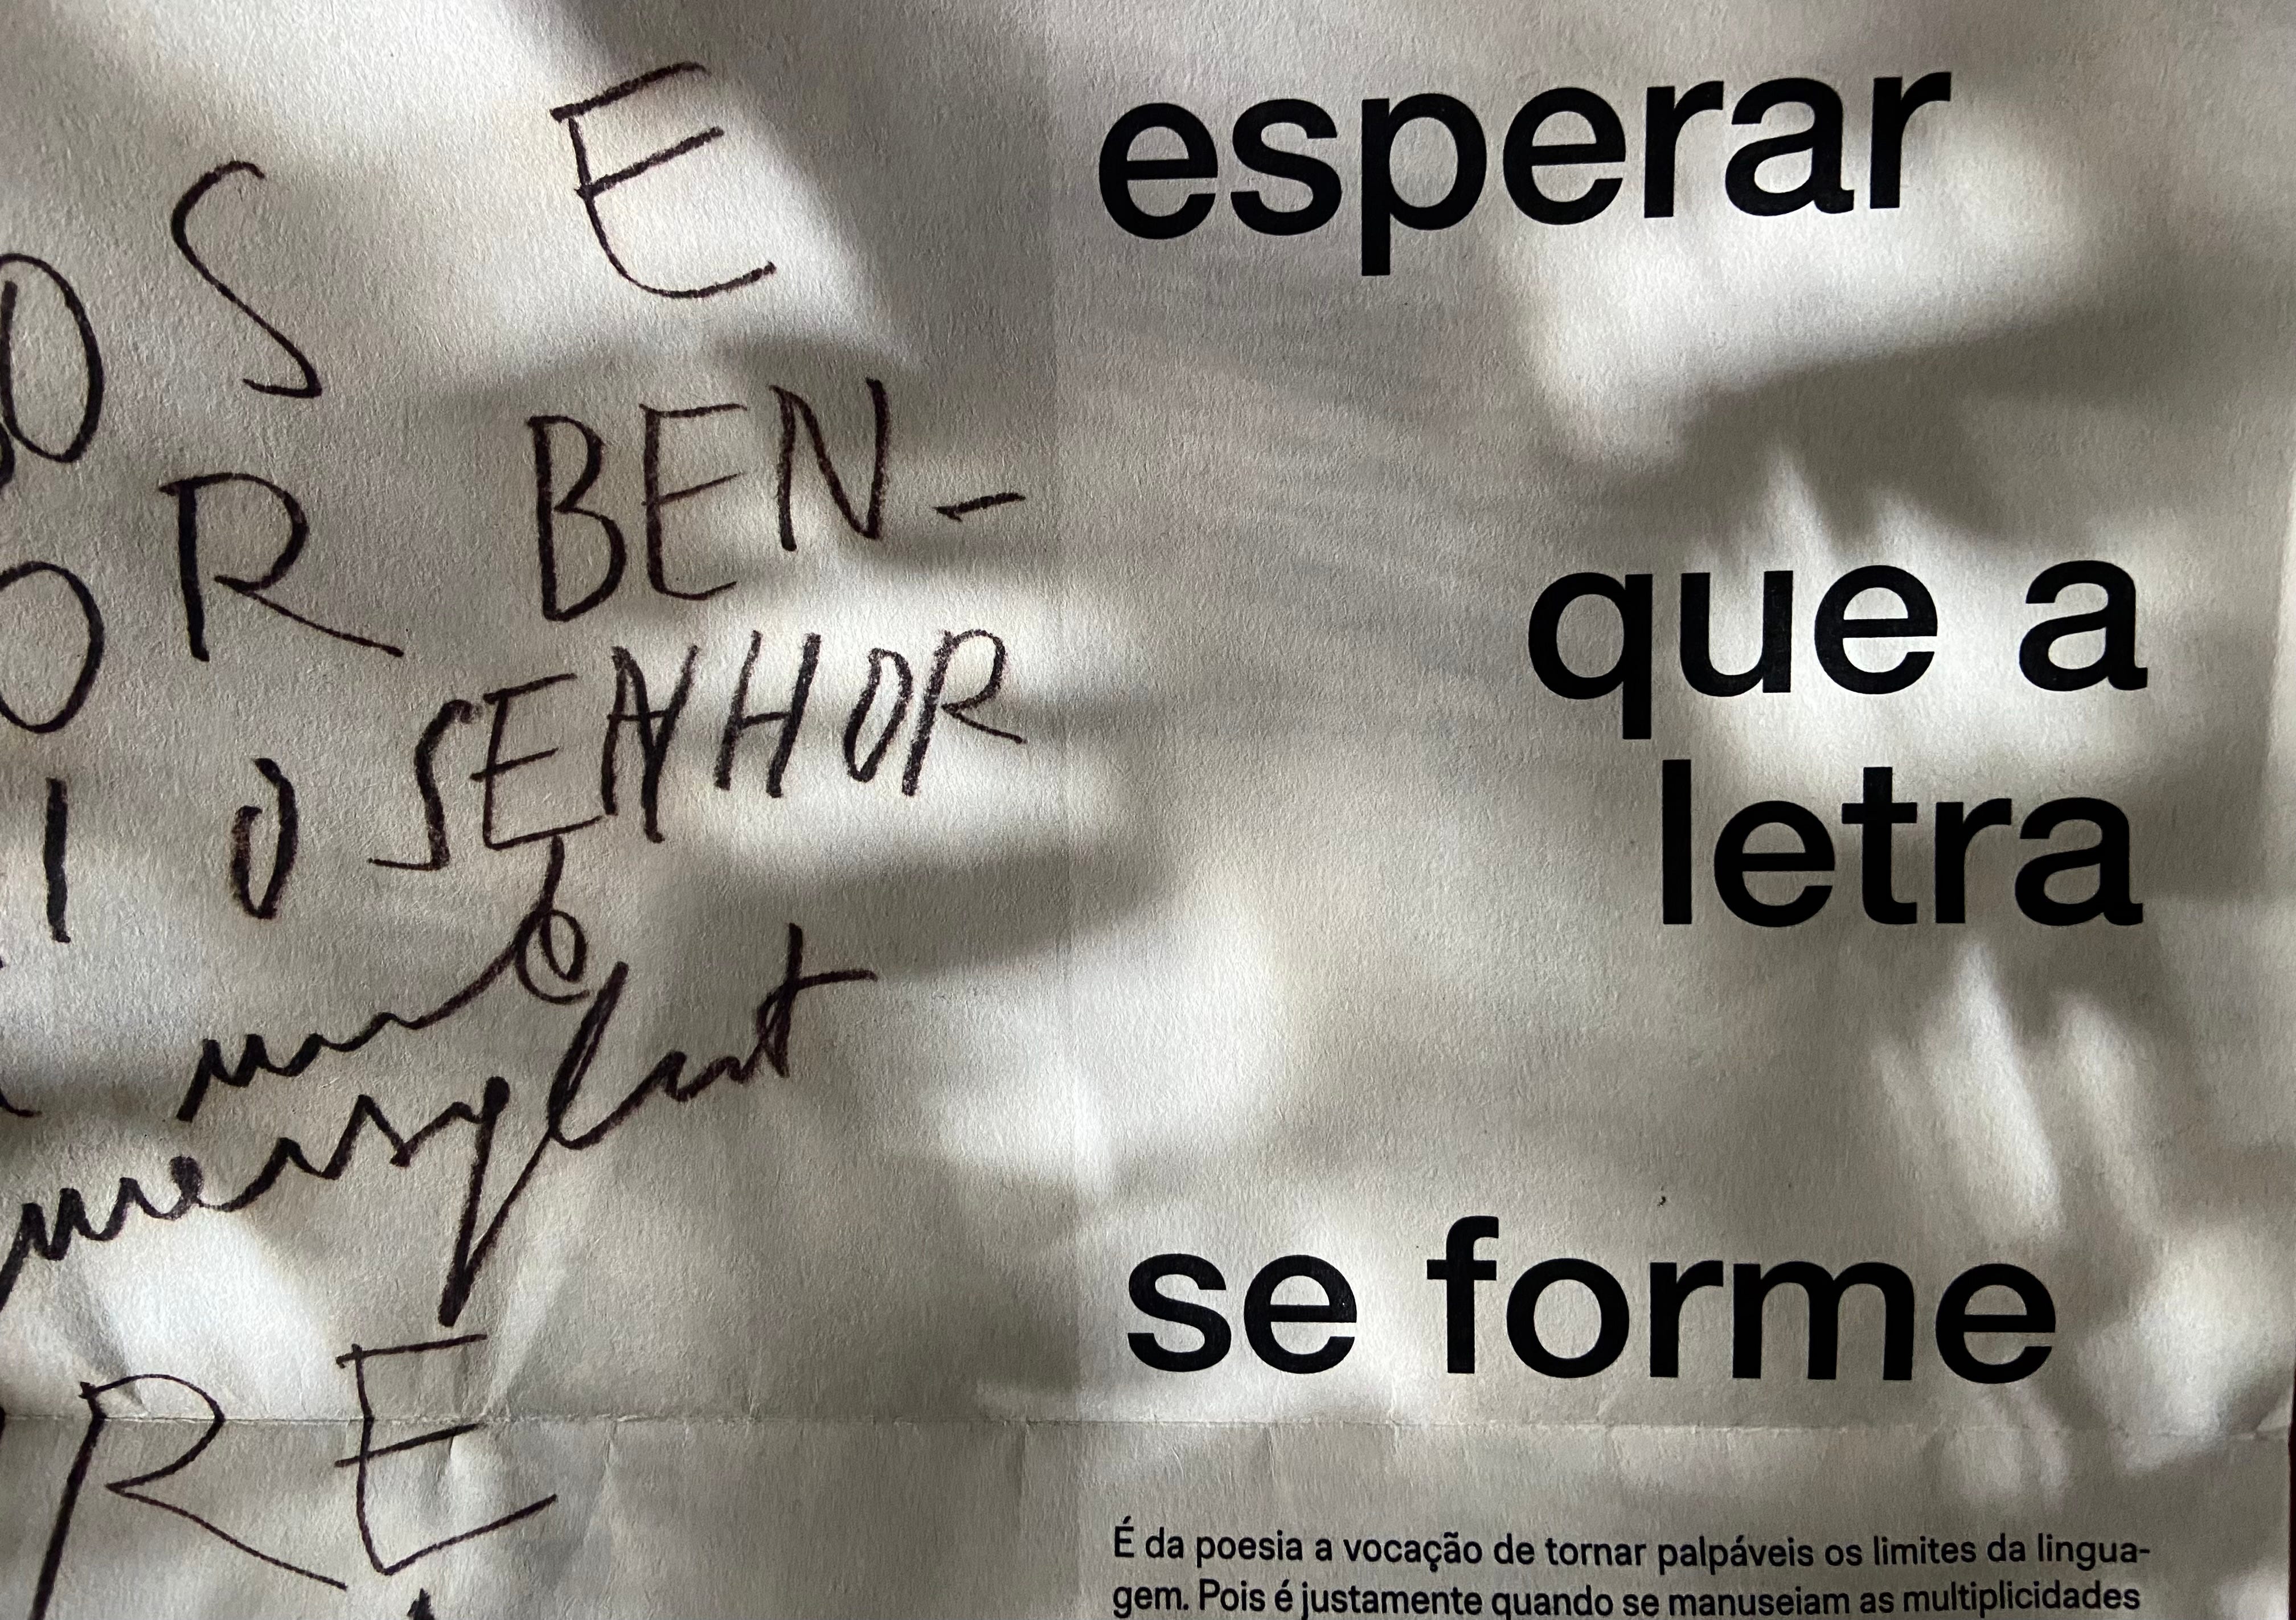 OS E
OR BEN-
I O SENHOR
RE
esperar
que a
letra
se forme
É da poesia a vocação de tornar palpáveis os limites da lingua-
gem. Pois é justamente quando se manuseiam as multiplicidades